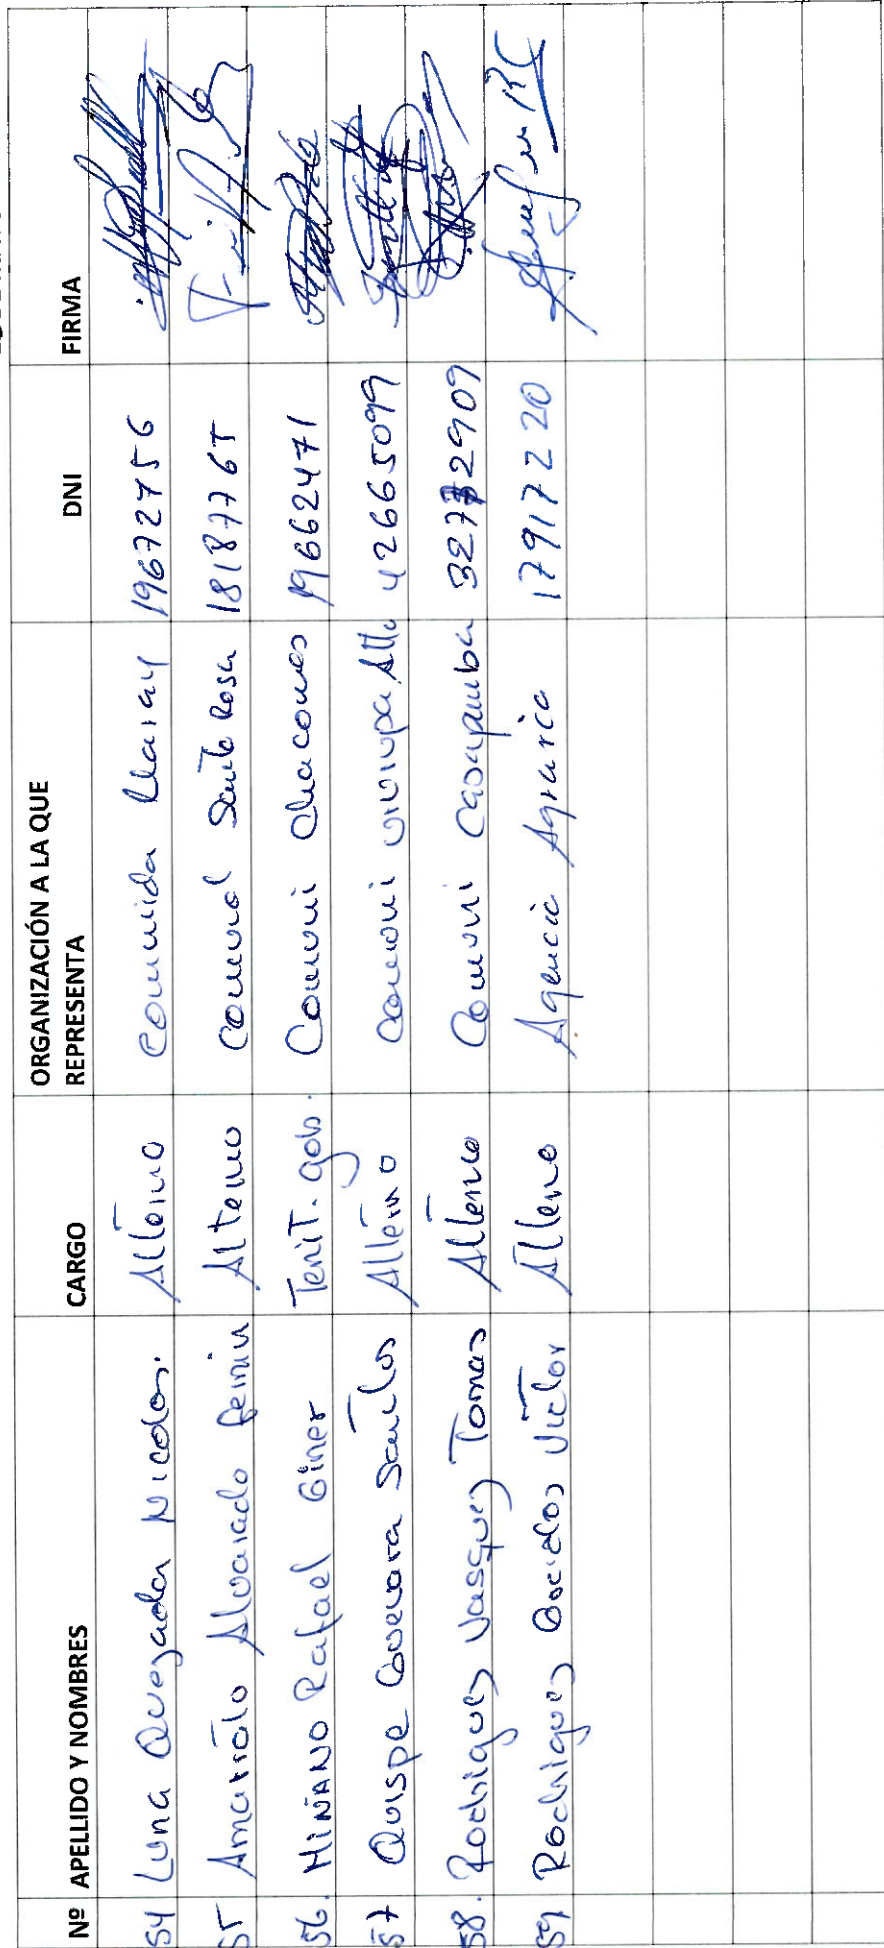 Nº APELLIDO Y NOMBRES CARGO ORGANIZACIÓN A LA QUE REPRESENTA DNI FIRMA
54 Luna Quezada Nicolas. Alterno Comunida Llaray 19672756
55 Amaranto Alvarado Fermin Alterno Comunal Santa Rosa 18187765
56. MIÑANO Rafael Giner Tenit. gob. Comuni Chacomas 19662471
57 Quispe Guevara Santos Alterno Comuni Alto 42665099
58. Rodriguez Vasquez Tomas Alterno Comuni Casapamba 32732909
59 Rodriguez Victor Alterno Agencia Agraria 17917220